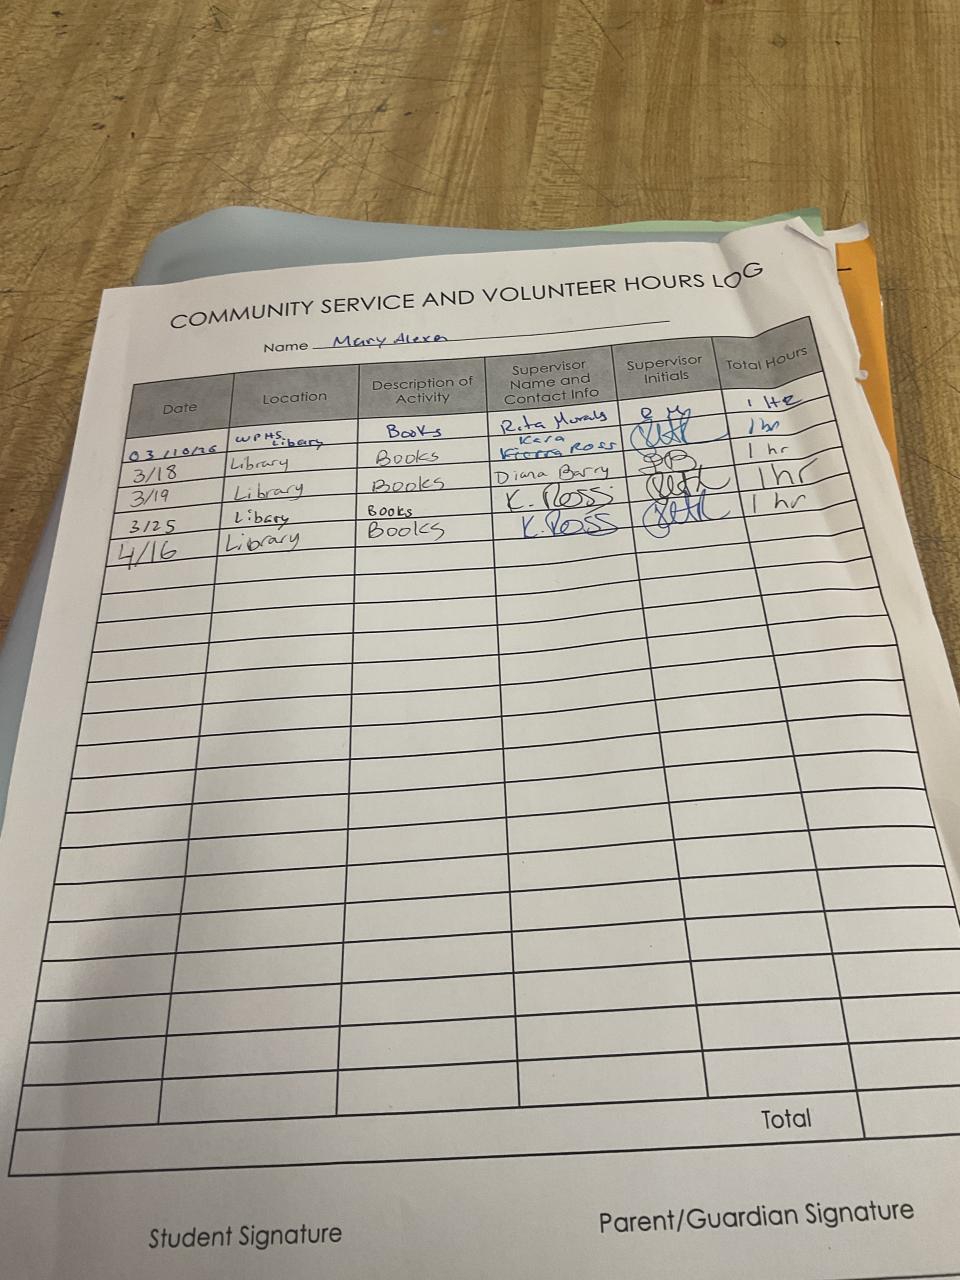 COMMUNITY SERVICE AND VOLUNTEER HOURS LOG
Name Mary Alexa
Date Location Description of Activity Supervisor Name and Contact Info Supervisor Initials Total Hours
03/10/26 WPHS Libary Books Rita Morals R M 1 HR
3/18 Library Books Kara Kierra Ross 1 hr
3/19 Library Books Diana Barry DB 1 hr
3/25 Libary Books K. Ross 1hr
4/16 Library Books K. Ross 1 hr
Total
Student Signature Parent/Guardian Signature